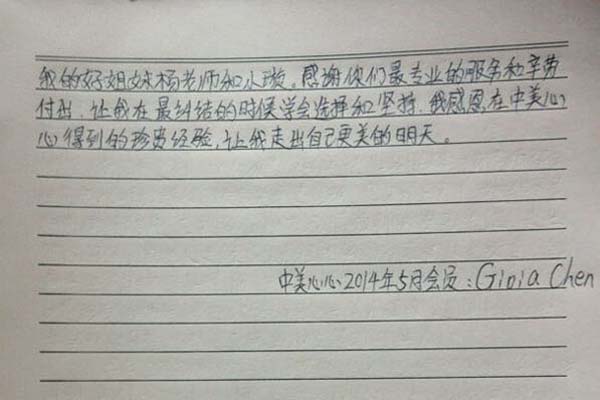 我的好姐妹杨老师和小璇，感谢你们最专业的服务和辛劳
付出，让我在最纠结的时候学会选择和坚持，我感恩在中美心
心得到的珍贵经验，让我走出自己更美的明天。
中美心心2014年5月会员：Gioia Chen